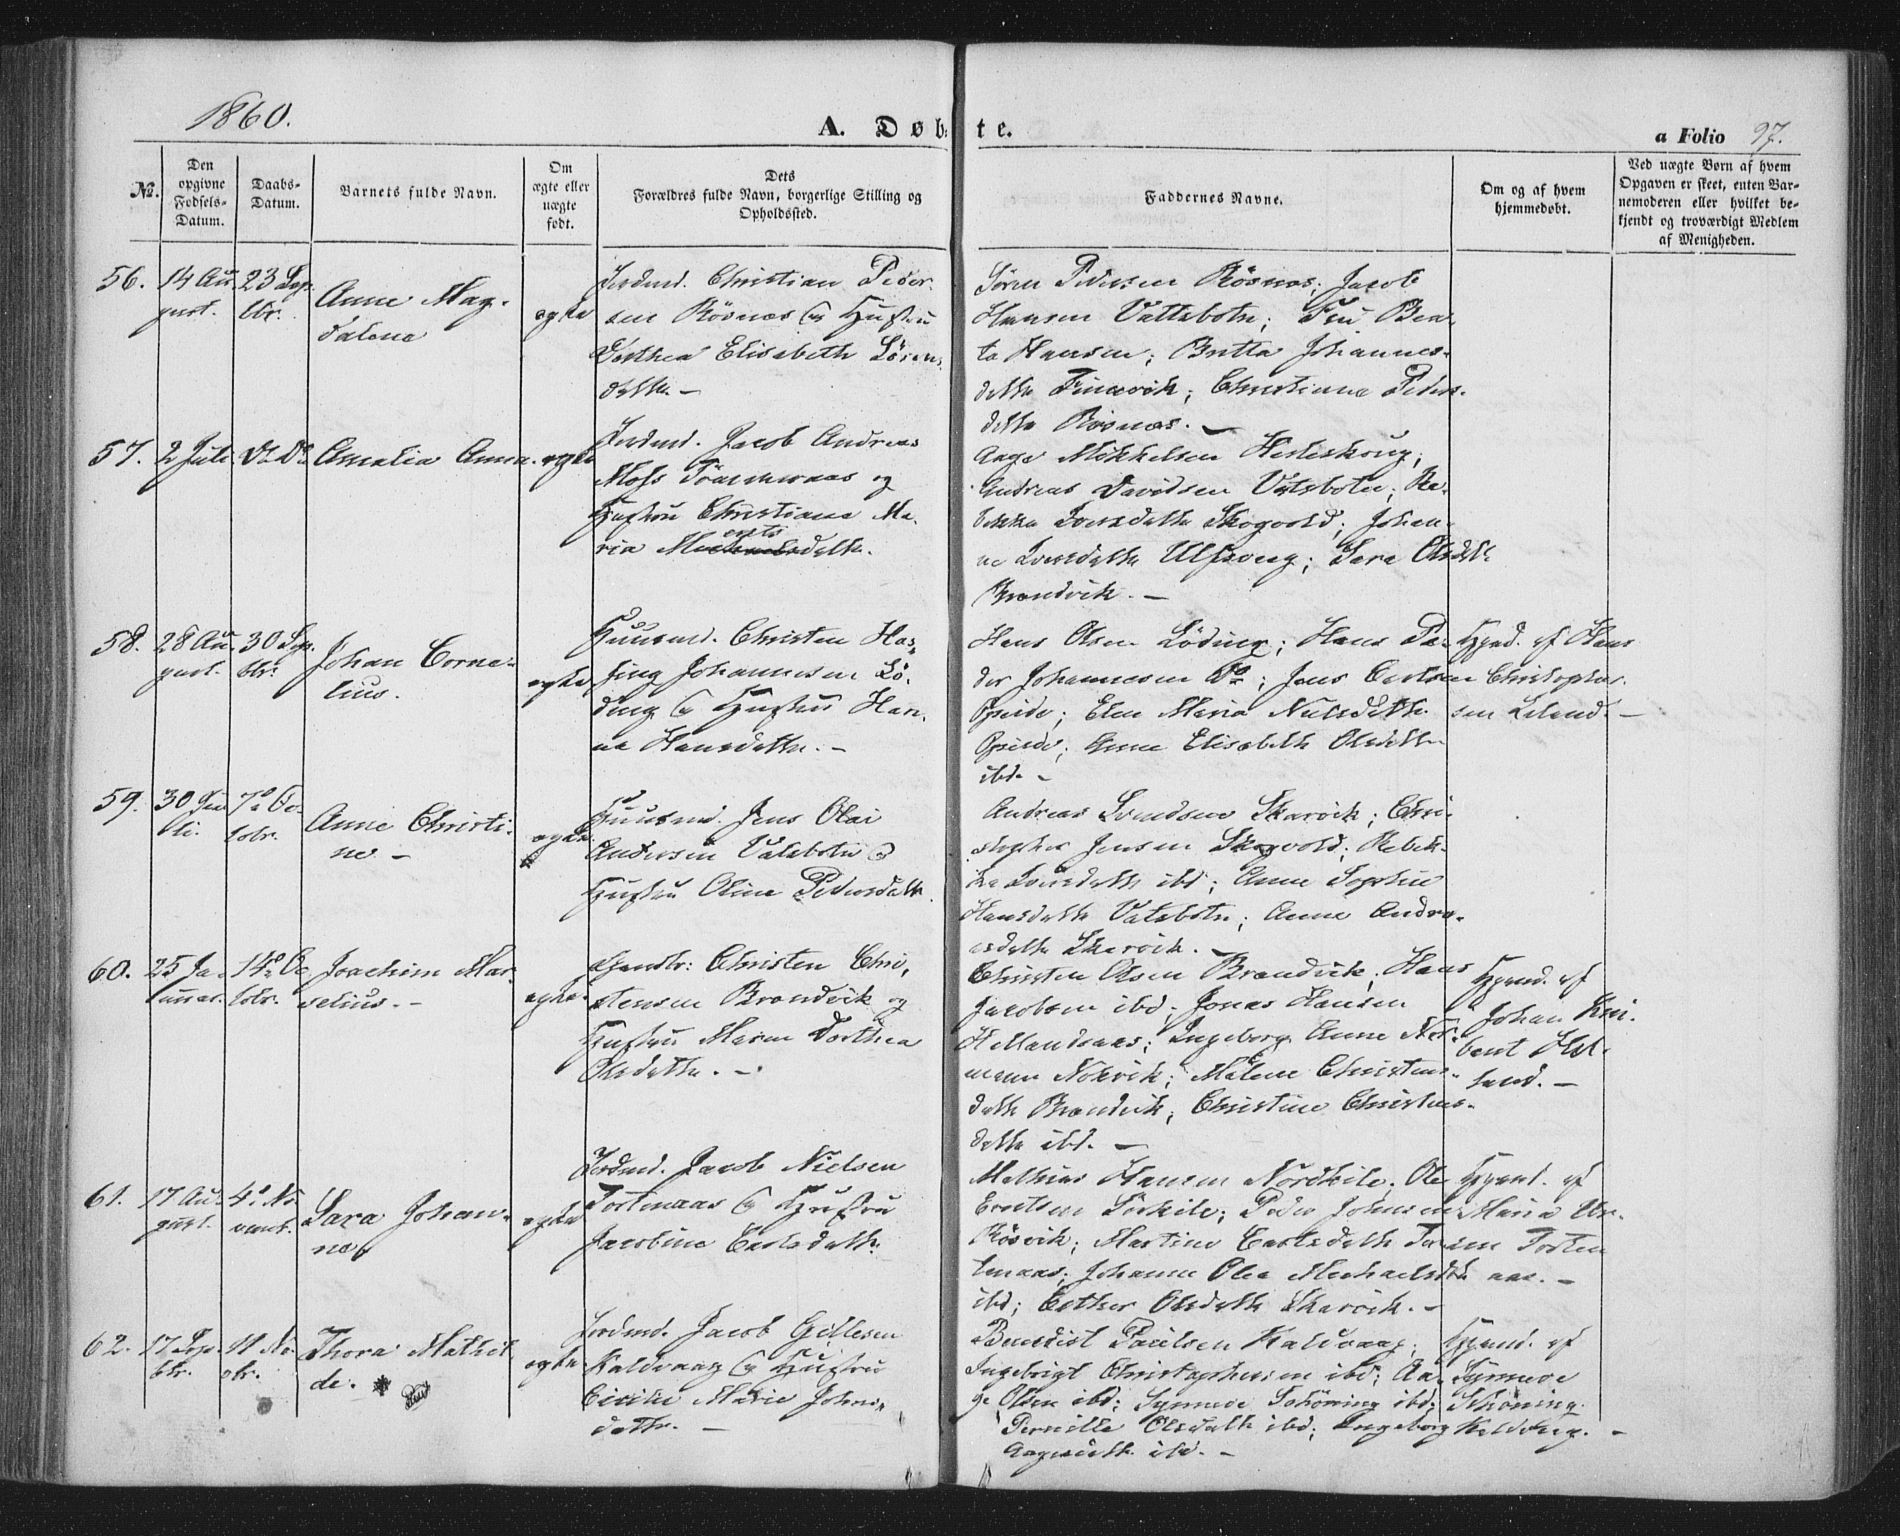 1860.
A. Døbte.
a Folio 97.
No.
Den opgivne Fødsels-Datum.
Daabs-Datum.
Barnets fulde Navn.
Om ægte eller uægte født.
Dets Forældres fulde Navn, borgerlige Stilling og Opholdssted.
Faddernes Navne.
Om og af hvem hjemmedøbt.
Ved uægte Børn af hvem Opgaven er skeet, enten Barnemoderen eller hvilket bekjendt og troværdigt Medlem af Menigheden.
56. 14 Au-
gust.
23 Sep
tbr.
Anne Mag-
dalena
ægte
Jordmd. Christian Peder-
sen Rösnæs og Hustru
Dorthea Elisabeth Sören-
datter.-
Sören Pedersen Rösnæs; Jacob
Hansen Vattsbotn; Fru Bea-
te Hansen; Britta Johannes-
datter Finnvik; Christiane Peders-
datter Rösnæs.-
57. 2 Juli
Do Do
Amalia Anna
ægte
Jordmd. Jacob Andreas
Mohs Tömmeraas og
Hustru Christiane Ma-
ria datter.
Aage Mikkelsen
Andreas Davidsen Vatsbotn; Re-
bekka Iversdatter Skogvold; Johan-
ne Iversdatter Ulfsvog; Sara Olsdtr
Brandvik.-
58. 28 Au-
gust.
30 Sep.
tbr.
Johan Corne-
lius.
ægte
Huusmd. Christen Has-
sing Johannesen Lö-
ding og Hustru Han-
na Hansdatter.-
Hans Olsen Löding; Hans Pe-
der Johannesen Do; Jens Carlsen
Opeide; Elen Maria Nielsdatter
Opeide; Anne Elisabeth Olsdatter
ibd.-
Hjmd. af Hans
Christopher-
sen Leland.-
59. 30 Ju
li.
7de Oc-
tobr.
Anne Christi-
ne -
ægte
Huusmd. Jens Olai
Andersen Vatsbotn og
Hustru Oline Pedersdatter.
Andreas Svendsen Skarvik; Chri-
stopher Jensen Skogvold; Rebek-
ka Iversdatter ibd; Anne Sophie
Hansdatter Vatsbotn; Anne Andre-
asdatter Skarvik.-
60. 25 Ja-
nuar.
14de Oc
tobr.
Joachim Mar-
selius.-
ægte
Christen Chri-
stensen Brandvik og
Hustru Maren Dorthea
Olsdatter.-
Christen Olsen Brandvik; Hans
Jacobsen ibd; Jonas Hansen
Hellandsaas; Ingeborg Anne Nor-
mann Nokvik; Malene Christens-
datter Brandvik; Christine Christens-
datter ibd.-
Hjmd. af
Johan
Hel-
land.-
61. 17 Au-
gust.
4de No
vembr.
Sara Johan-
ne
ægte
Jordmd. Jacob Nielsen
Tortenaas og Hustru
Jacobine Carlsdatter.
Mathias Hansen Nordkile; Ole
Evertsen Sörkile; Peder Johnsen
Rösvik; Martine Carlsdatter Tor-
tenaas; Johanne Olea Michaelsdtr
ibd; Esther Olsdatter Skarvik.-
Hjmd. af
Maria
sen Torten
aas.-
62. 17 Sep-
tbr.
11 No-
vbr.
Thora Mathil-
de.
ægte
Jordmd. Jacob Gillesen
Kaldvaag og Hustru
Cicilie Marie Johns-
datter.-
Benedict Paulsen Kaldvaag;
Ingebrigt Christophersen ibd; Aa-
ge Olsen ibd; Synneve Schöning ibd;
Pernille Olsdatter ibd; Ingeborg
Aagesdatter ibd.-
Hjmd. af
Synneve
Schöning
Kaldvaag.-